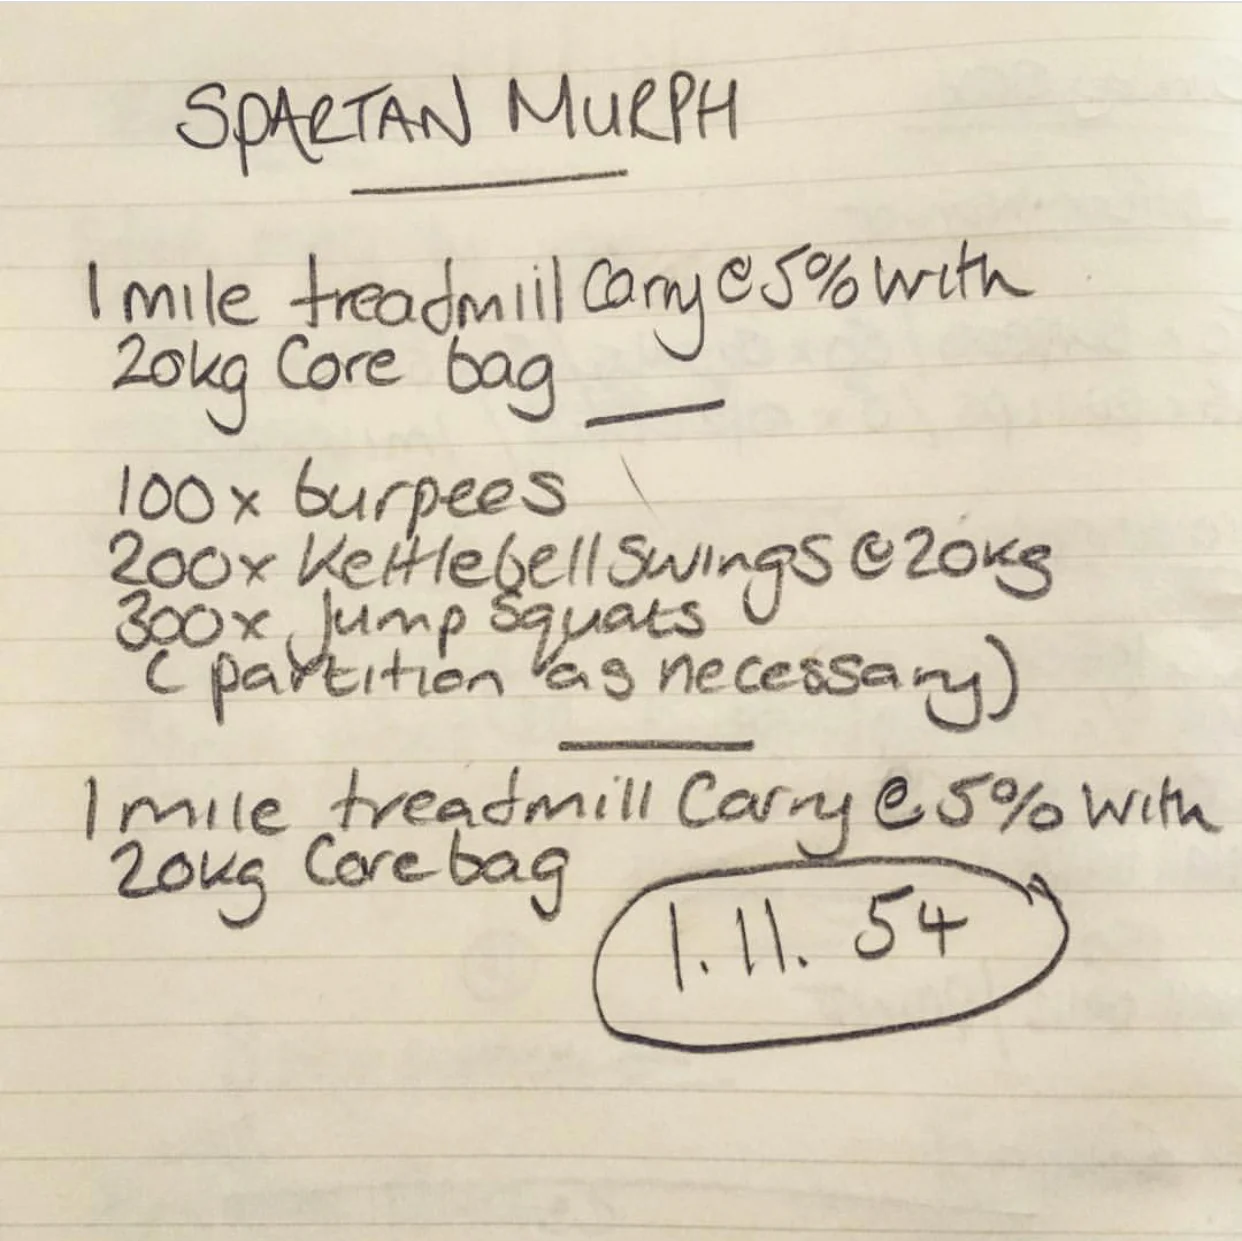 SPARTAN MURPH
1 mile treadmill Carry @ 5% with
20kg Core bag
100x burpees
200x Kettlebell Swings @ 20kg
300x Jump Squats
(partition as necessary)
1 mile treadmill Carry @ 5% with
20kg Core bag
1.11. 54